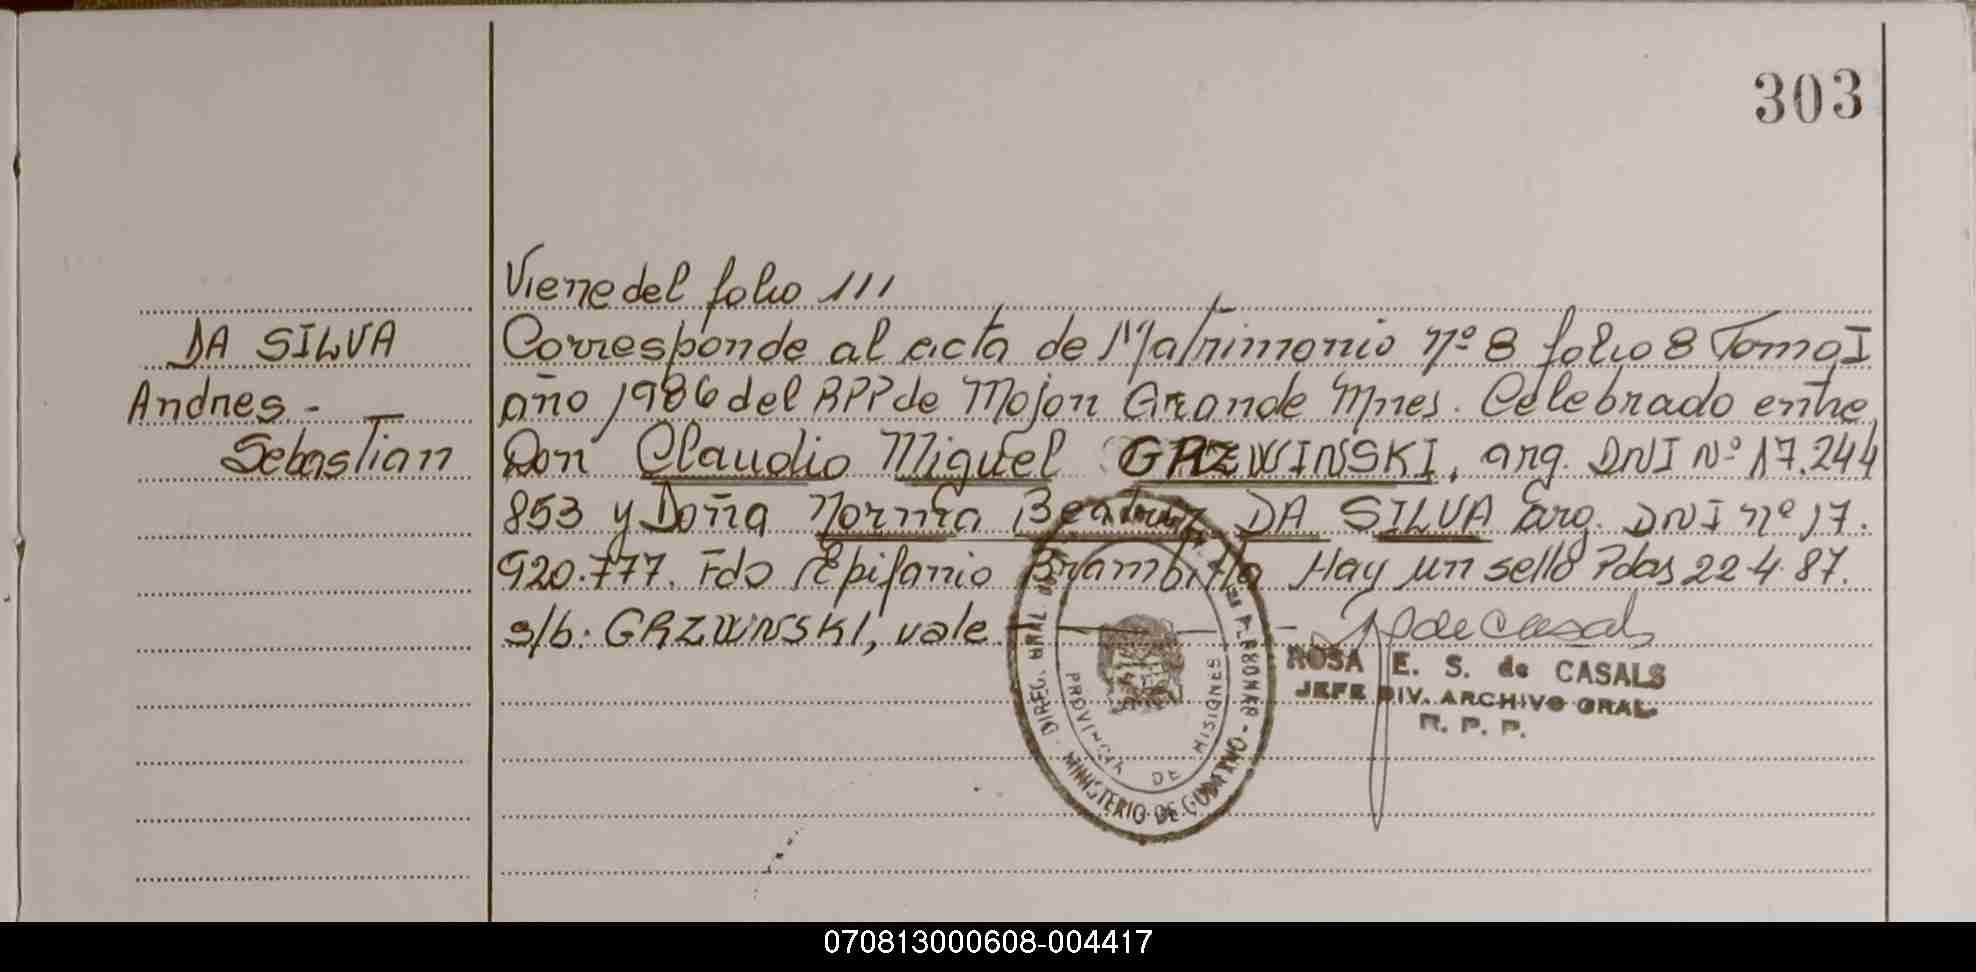 303
Viene del folio 111
DA SILVA
Andres -
Sebastian
Corresponde al acta de Matrimonio nº 8 folio 8 Tomo I
año 1986 del RPP de Mojon Grande Mnes. Celebrado entre
Don Claudio Miguel GRZWINSKI, arg. DNI Nº 17.244
853 y Doña Norma Beatriz DA SILVA arg. DNI nº 17.
920.777. Fdo Epifanio Brambilla Hay un sello Pdas 22-4-87.
s/b: GRZWNSKI, vale
ROSA E. S. de CASALS
JEFE DIV. ARCHIVO GRAL.
R. P. P.
DIREC. GRAL. DE LAS PERSONAS - MINISTERIO DE GOBIERNO -
PROVINCIA DE MISIONES
070813000608-004417